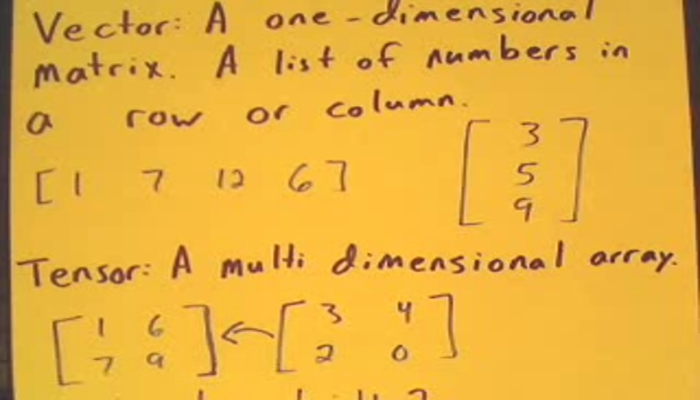 Vector: A one-dimensional
matrix. A list of numbers in
a row or column.
[1 7 12 6] [3
5
9]
Tensor: A multi dimensional array.
[1 6 ← [3 4
7 9] 2 0]